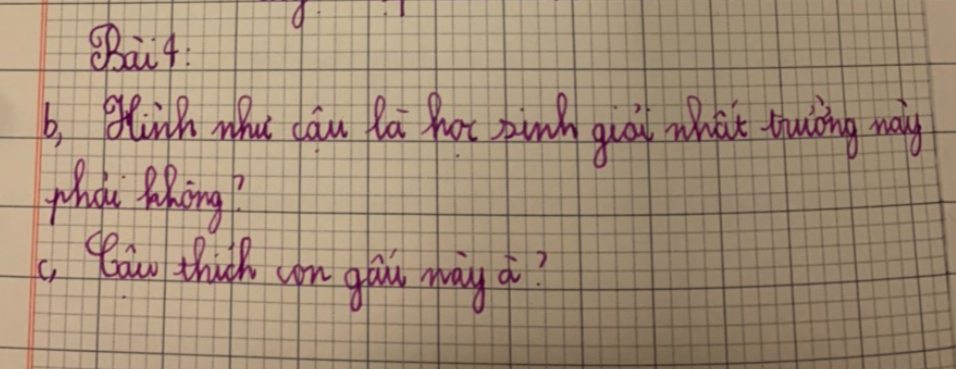 Bài 4:
b, Hình như cậu là học sinh giỏi nhất trường này
phải không?
c, Cậu thích con gấu này à?